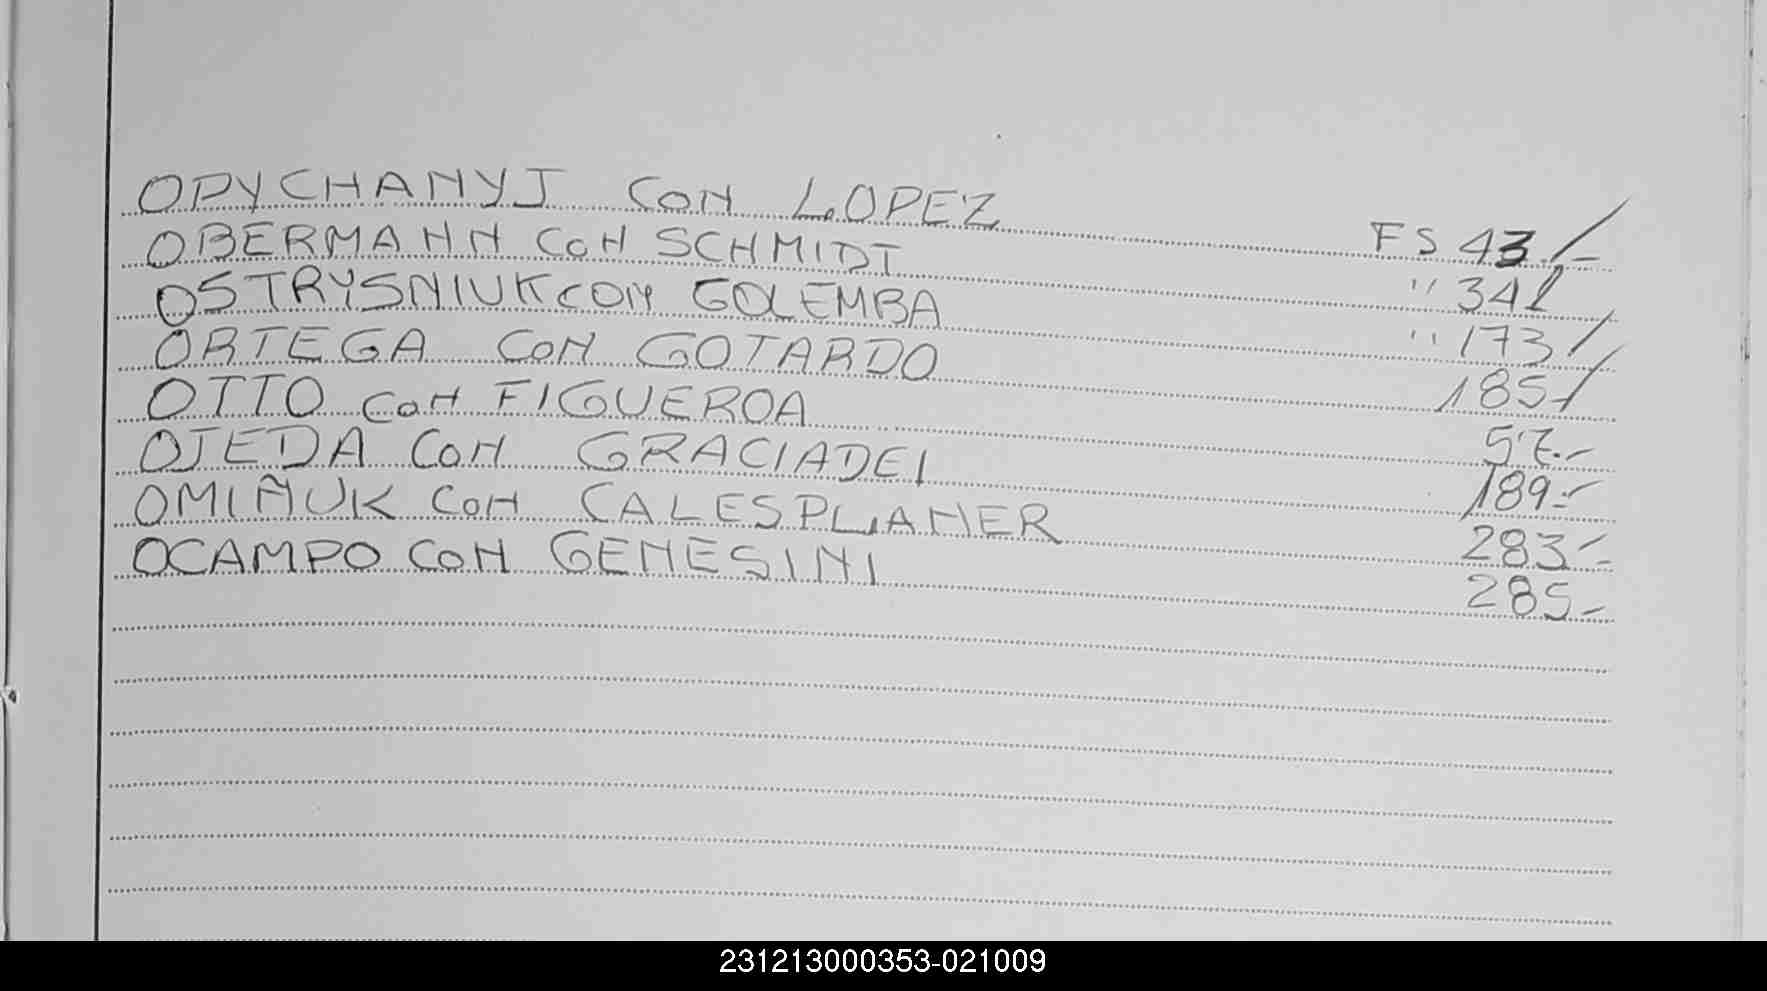 OPYCHANYJ CON LOPEZ FS 43.-
OBERMANN CON SCHMIDT " 341
OSTRYSNIUK CON GOLEMBA " 173
ORTEGA CON GOTARDO 185-
OTTO CON FIGUEROA 57.-
OJEDA CON GRACIADEI 189.-
OMIÑUK CON CALESPLANER 283.-
OCAMPO CON GENESINI 285-
231213000353-021009